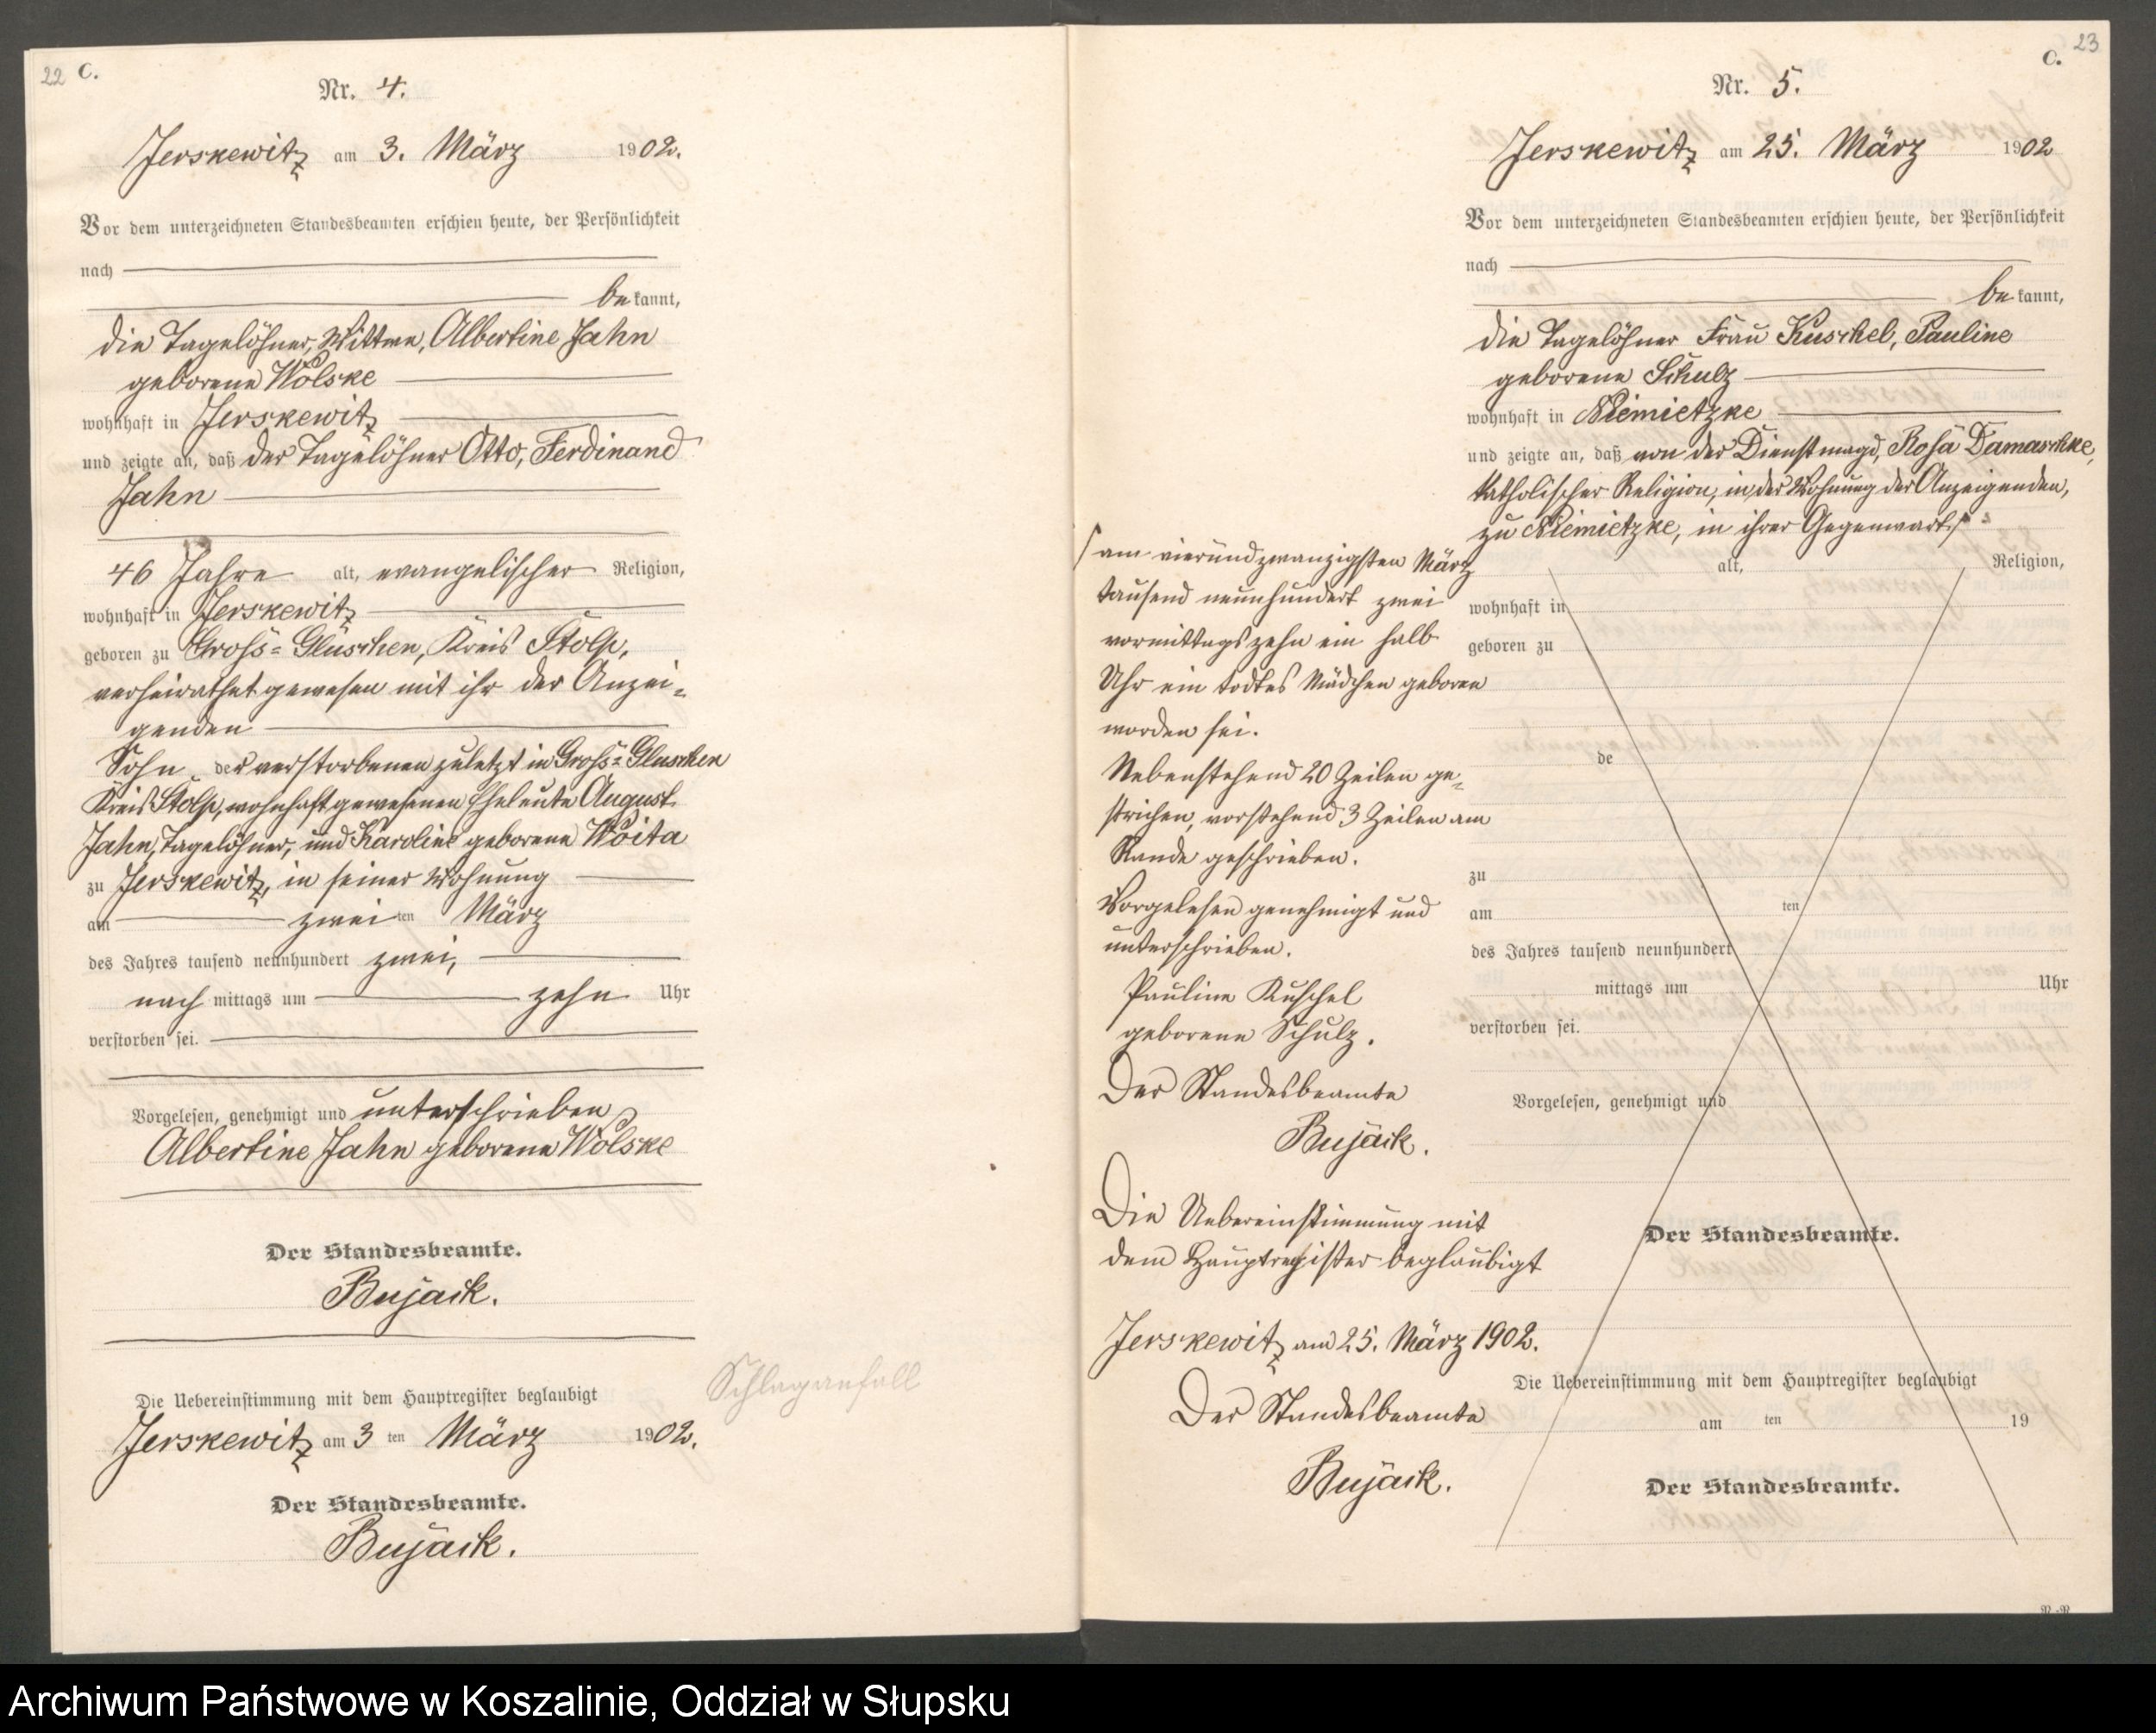 22 C.
Nr. 4.
Jerskewitz am 3. März 1902.
Vor dem unterzeichneten Standesbeamten erschien heute, der Persönlichkeit
nach
bekannt,
die Tagelöhner, Wittwe, Albertine Jahn
geborene Wölske
wohnhaft in Jerskewitz
und zeigte an, daß der Tagelöhner Otto, Ferdinand
Jahn
46 Jahre alt, evangelischer Religion,
wohnhaft in Jerskewitz
geboren zu Gross=Gluschen, Kreis Stolp,
verheirathet gewesen mit ihr der Anzei=
genden
Sohn der verstorbenen zuletzt in Gross=Gluschen
Kreis Stolp, wohnhaft gewesenen Eheleute August
Jahn, Tagelöhner, und Karoline geborene Woita
zu Jerskewitz, in seiner Wohnung
am zweiten März
des Jahres tausend neunhundert zwei,
nachmittags um zehn Uhr
verstorben sei.
Vorgelesen, genehmigt und unterschrieben
Albertine Jahn geborene Wölske
Der Standesbeamte.
Bujack.
Die Uebereinstimmung mit dem Hauptregister beglaubigt
Jerskewitz am 3ten März 1902.
Der Standesbeamte.
Bujack.
Schlaganfall
C. 23
Nr. 5.
Jerskewitz am 25. März 1902
Vor dem unterzeichneten Standesbeamten erschien heute, der Persönlichkeit
nach
bekannt,
die Tagelöhner Frau Kuschel, Pauline
geborene Schulz
wohnhaft in Niemietzke
und zeigte an, daß von der Dienstmagd, Rosa Damaschke,
katholischer Religion, in der Wohnung der Anzeigenden,
zu Niemietzke, in ihrer Gegenwart
am vierundzwanzigsten März
tausend neunhundert zwei
vormittags zehn ein halb
Uhr ein todtes Mädchen geboren
worden sei.
Nebenstehend 20 Zeilen ge=
strichen, vorstehend 3 Zeilen am
Rande geschrieben.
Vorgelesen genehmigt und
unterschrieben.
Pauline Kuschel
geborene Schulz.
Der Standesbeamte
Bujack.
Die Uebereinstimmung mit
dem Hauptregister beglaubigt
Jerskewitz am 25. März 1902.
Der Standesbeamte
Bujack.
alt, Religion,
wohnhaft in
geboren zu
de
zu
am ten
des Jahres tausend neunhundert
mittags um Uhr
verstorben sei.
Vorgelesen, genehmigt und
Der Standesbeamte.
Die Uebereinstimmung mit dem Hauptregister beglaubigt
am ten 19
Der Standesbeamte.
Archiwum Państwowe w Koszalinie, Oddział w Słupsku